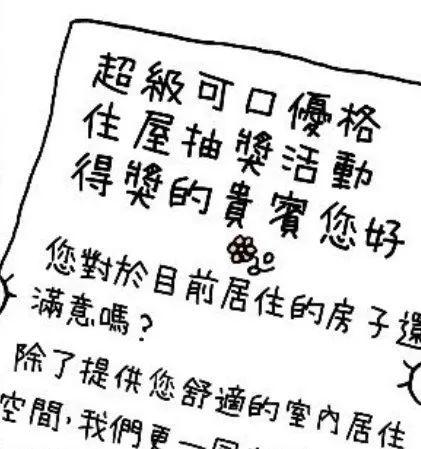 超級可口優格
住屋抽獎活動
得獎的貴賓您好
您對於目前居住的房子還
滿意嗎?
除了提供您舒適的室內居住
空間,我們更一